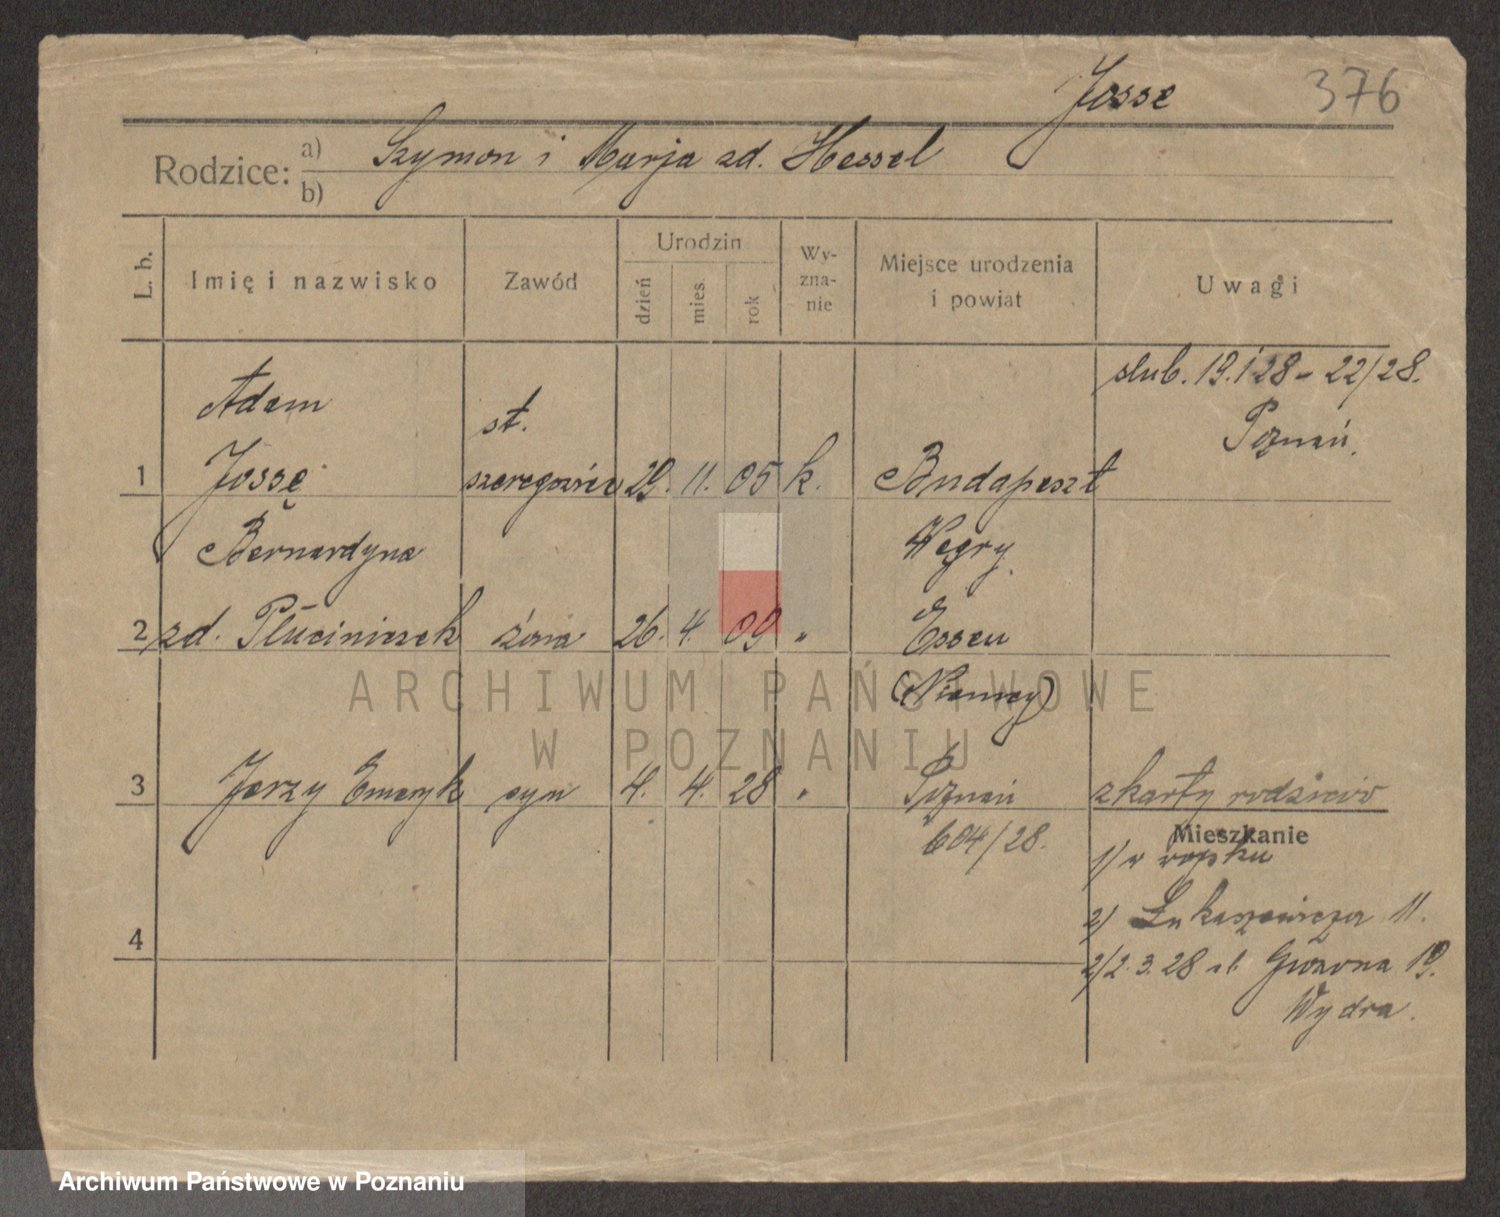 Josse 376
Rodzice: a) Szymon i Marja zd. Hessel
b)
L. b. Imię i nazwisko Zawód Urodzin dzień mies. rok Wy-zna-nie Miejsce urodzenia i powiat Uwagi
slub. 19.1 28 - 22/28.
Adam st. Poznań.
1 Josse szeregowiec 29. 11. 05 k. Budapeszt
Bernardyna Węgry
2 zd. Pluciniczek żona 26. 4. 09 " Essen
(Niemcy)
ARCHIWUM PAŃSTWOWE
W POZNANIU
3 Jerzy Emeryk syn 4. 4. 28 " Poznań z karty rodziców
604/28. Mieszkanie
1/ w wojsku
2/ Łukaszewicza 11.
4
2/2.3.28 ul. Główna 19.
Wydra.
Archiwum Państwowe w Poznaniu